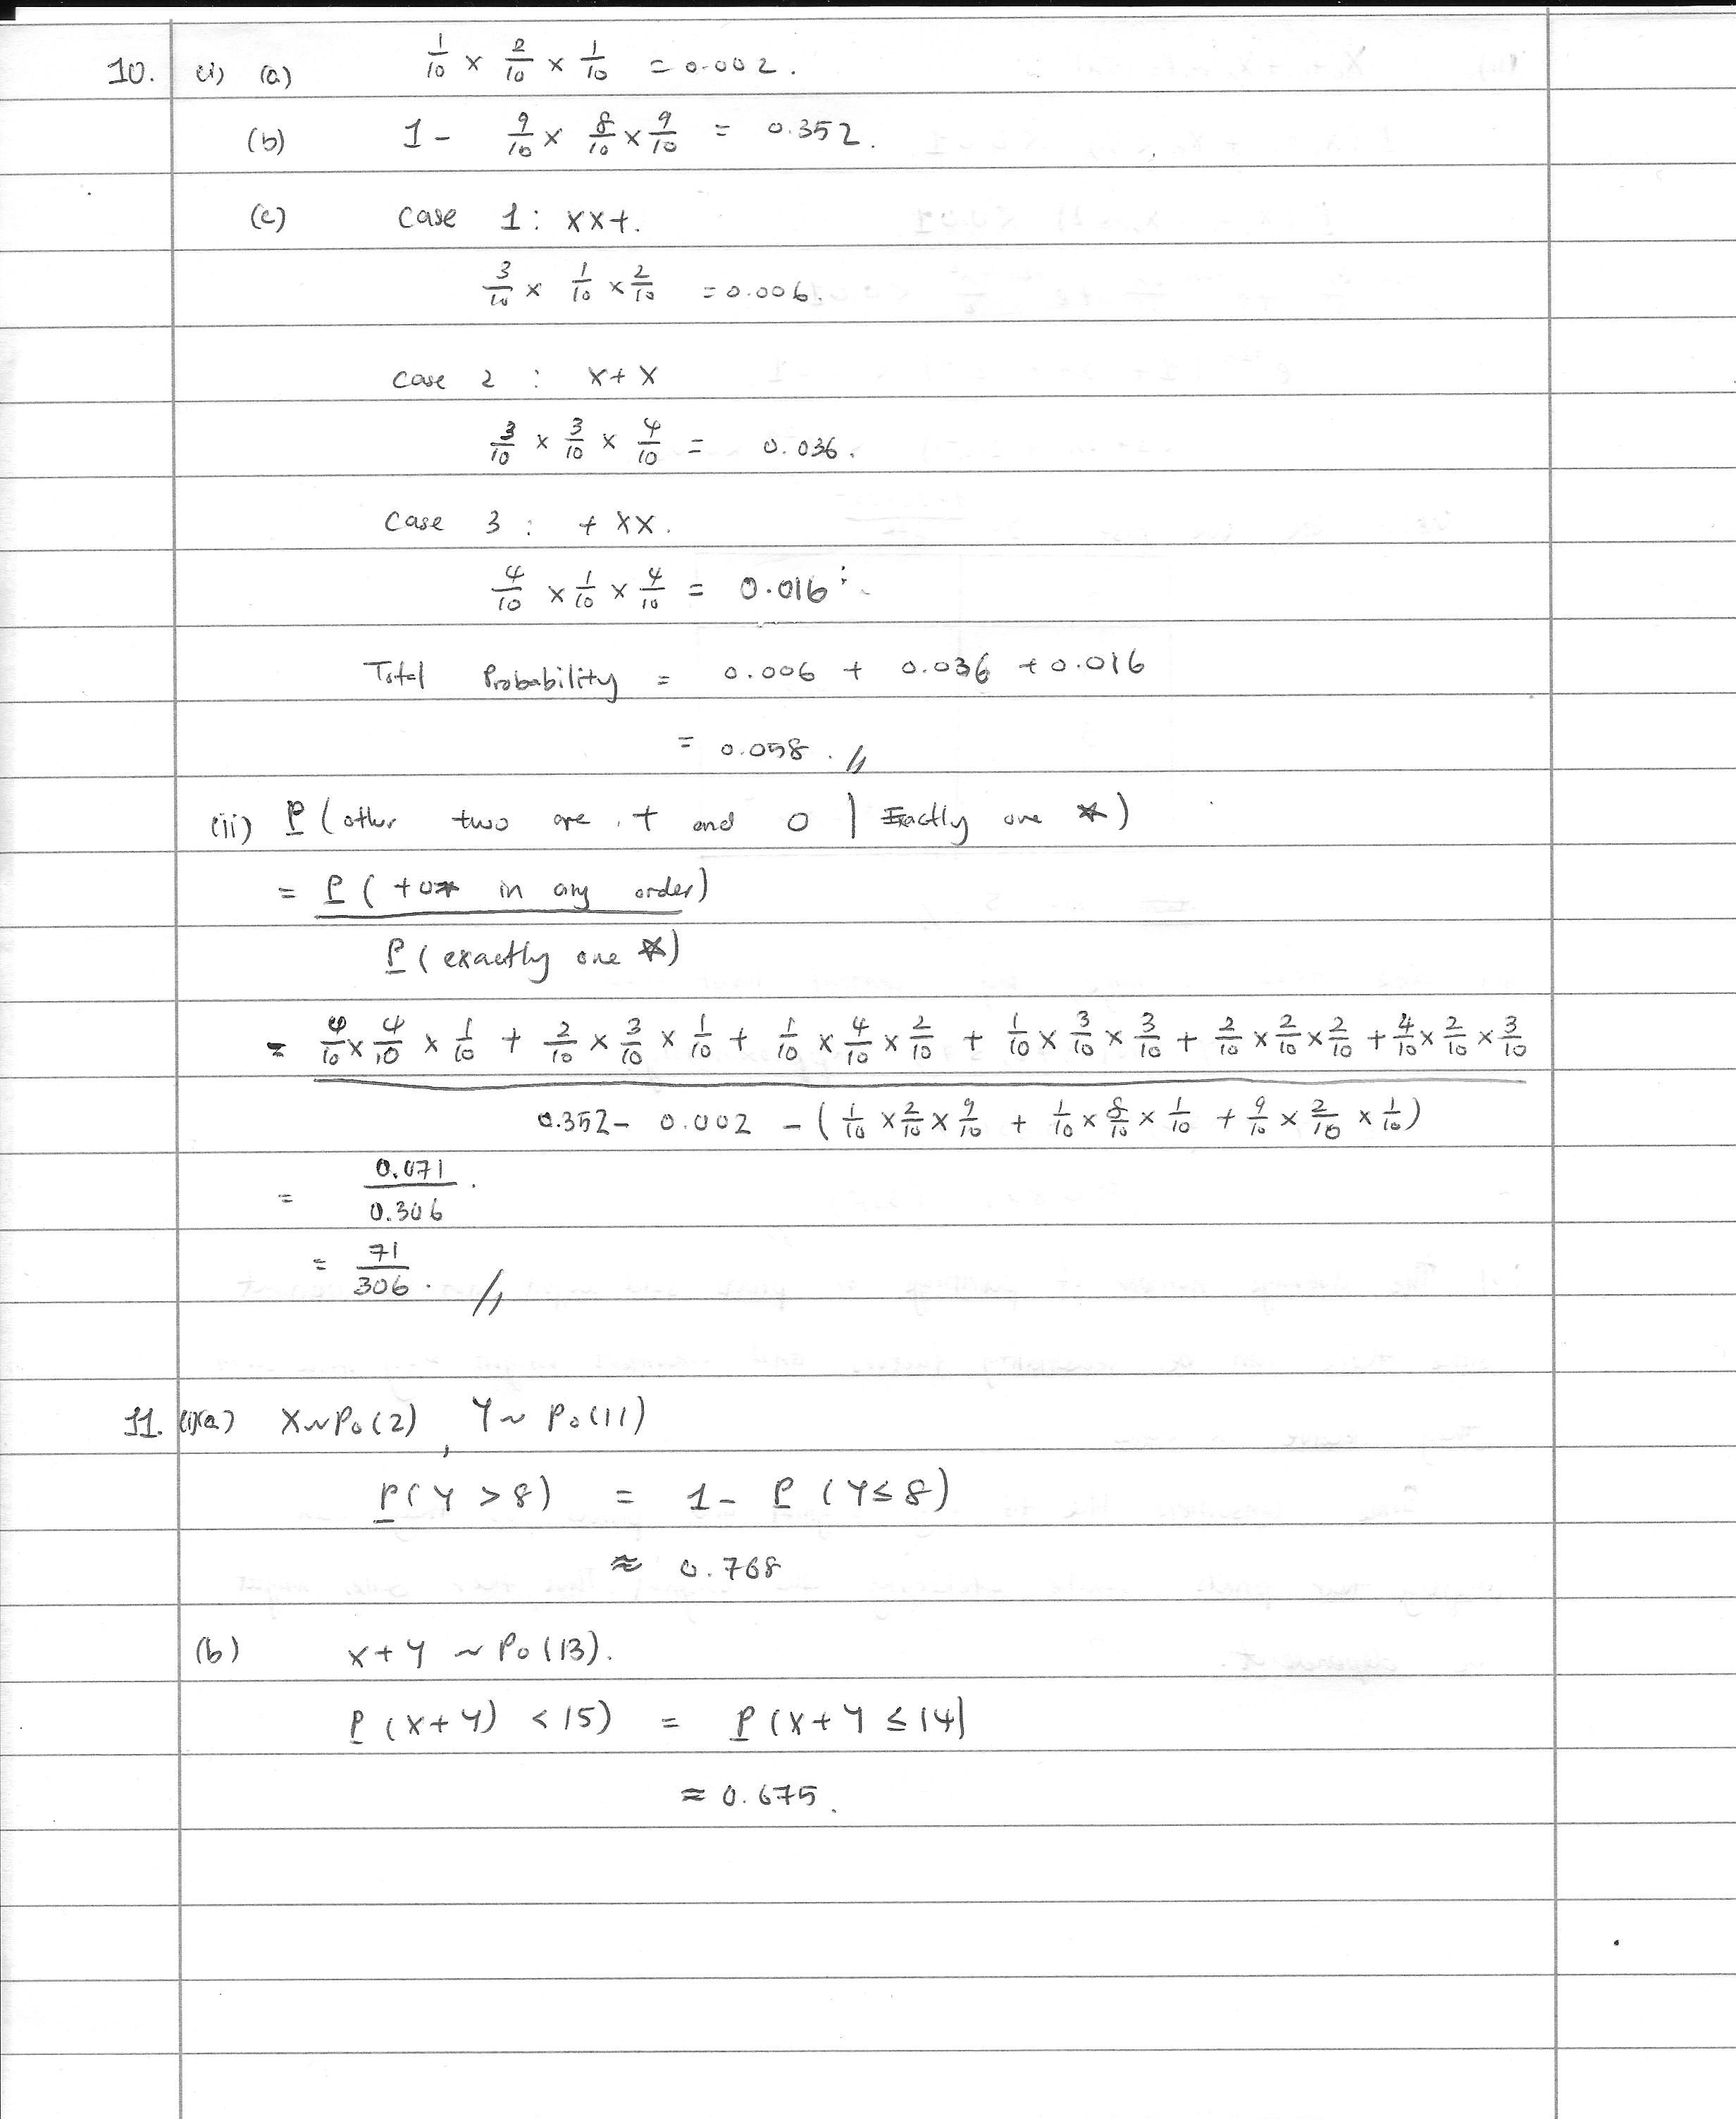 10. (i) (a) 1/10 × 2/10 × 1/10 = 0.002.
(b) 1 - 9/10 × 8/10 × 9/10 = 0.352.
(c) Case 1: XX+.
3/10 × 1/10 × 2/10 = 0.006.
Case 2 : X+X
3/10 × 3/10 × 4/10 = 0.036.
Case 3 : +XX.
4/10 × 1/10 × 4/10 = 0.016
Total Probability = 0.006 + 0.036 + 0.016
= 0.058. //
(ii) P(other two are + and 0 | Exactly one *)
= P(+0* in any order)
P(exactly one *)
= 4/10 × 4/10 × 1/10 + 2/10 × 3/10 × 1/10 + 1/10 × 4/10 × 2/10 + 1/10 × 3/10 × 3/10 + 2/10 × 2/10 × 2/10 + 4/10 × 2/10 × 3/10
0.352 - 0.002 - (1/10 × 2/10 × 9/10 + 1/10 × 8/10 × 1/10 + 9/10 × 2/10 × 1/10)
= 0.071/0.306.
= 71/306. //
11. (i)(a) X~Po(2), Y~Po(11)
P(Y > 8) = 1 - P(Y ≤ 8)
≈ 0.768
(b) X+Y ~ Po(13).
P(X+Y) < 15) = P(X+Y ≤ 14)
≈ 0.675.